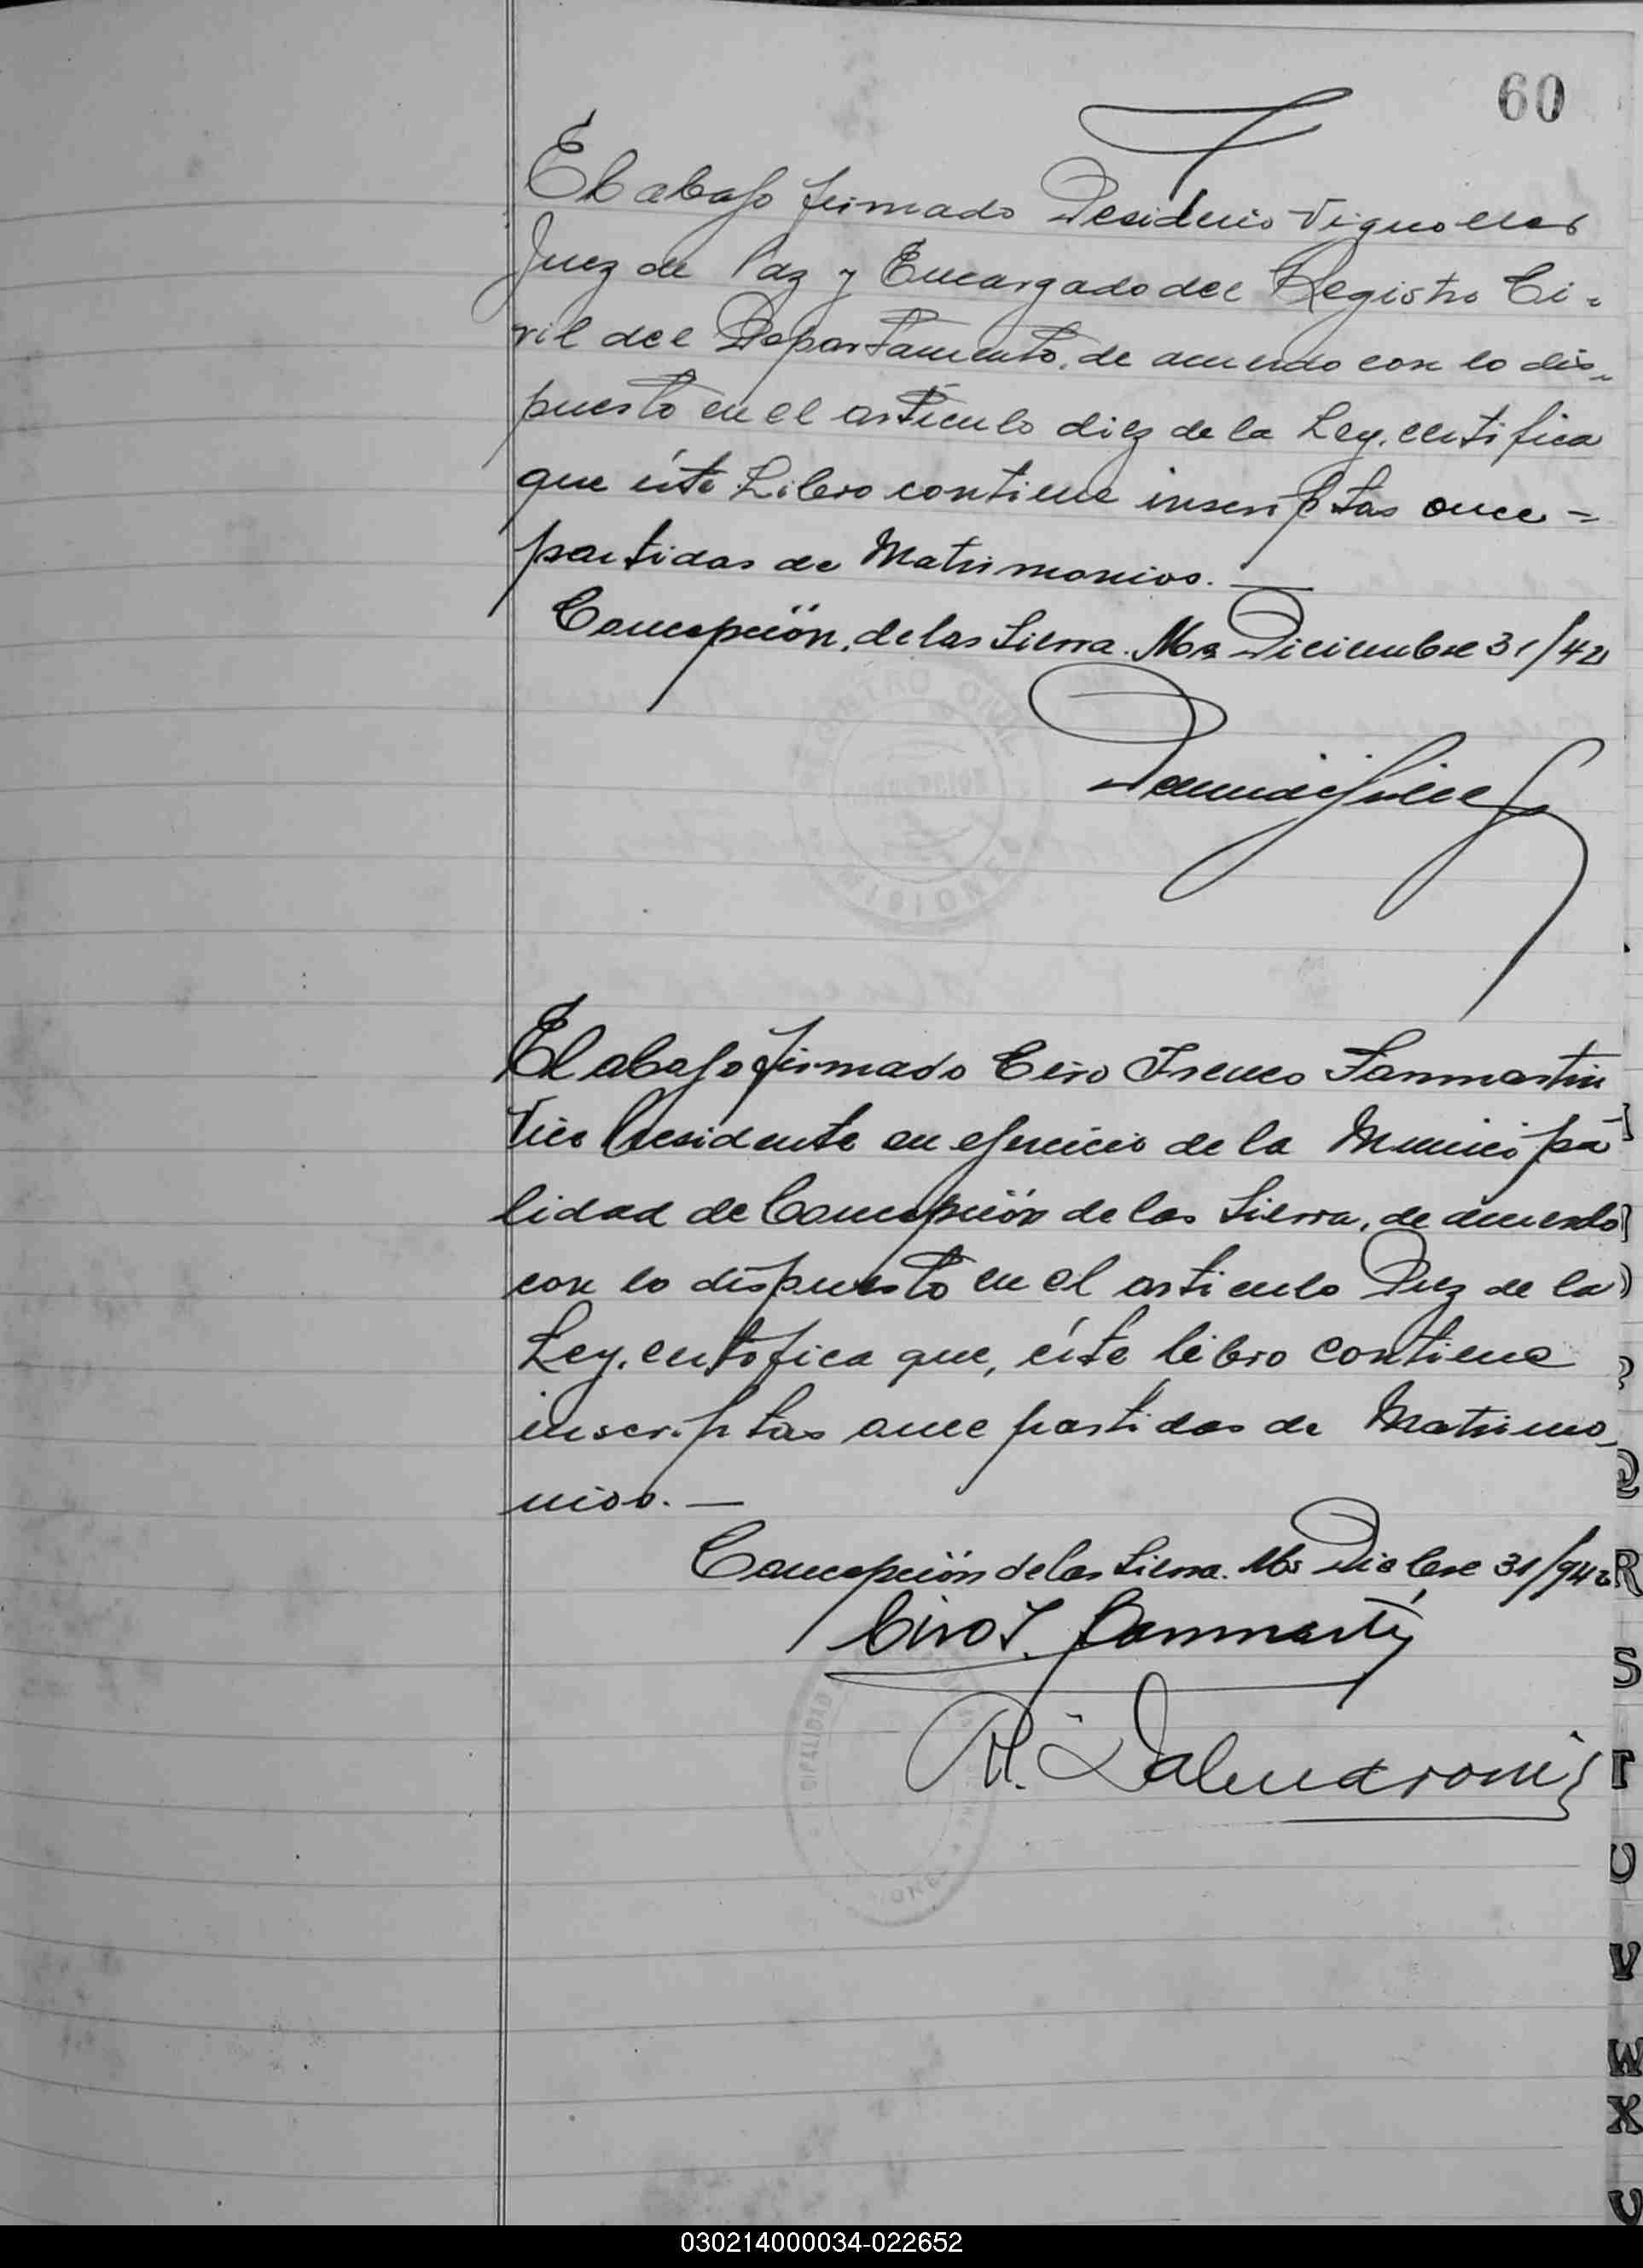 60
El abajo firmado Desiderio Vignolles
Juez de Paz y Encargado del Registro Ci-
vil del Departamento, de acuerdo con lo dis-
puesto en el artículo diez de la Ley, certifica
que éste Libro contiene inscriptas once =
partidas de Matrimonios. —
Concepción, de las Sierra. Mes Diciembre 31/42
El abajo firmado Ciro Ireneo Sanmartin
Vice Presidente en ejercicio de la Municipa
lidad de Concepción de las Sierra, de acuerdo
con lo dispuesto en el articulo Diez de la
Ley, certifica que, éste libro contiene
inscriptas once partidas de Matrimo-
nios. —
Concepción de las Sierra. Ms Dicbre 31/942
Ciro I. Sanmartin
R
S
T
U
V
W
X
030214000034-022652